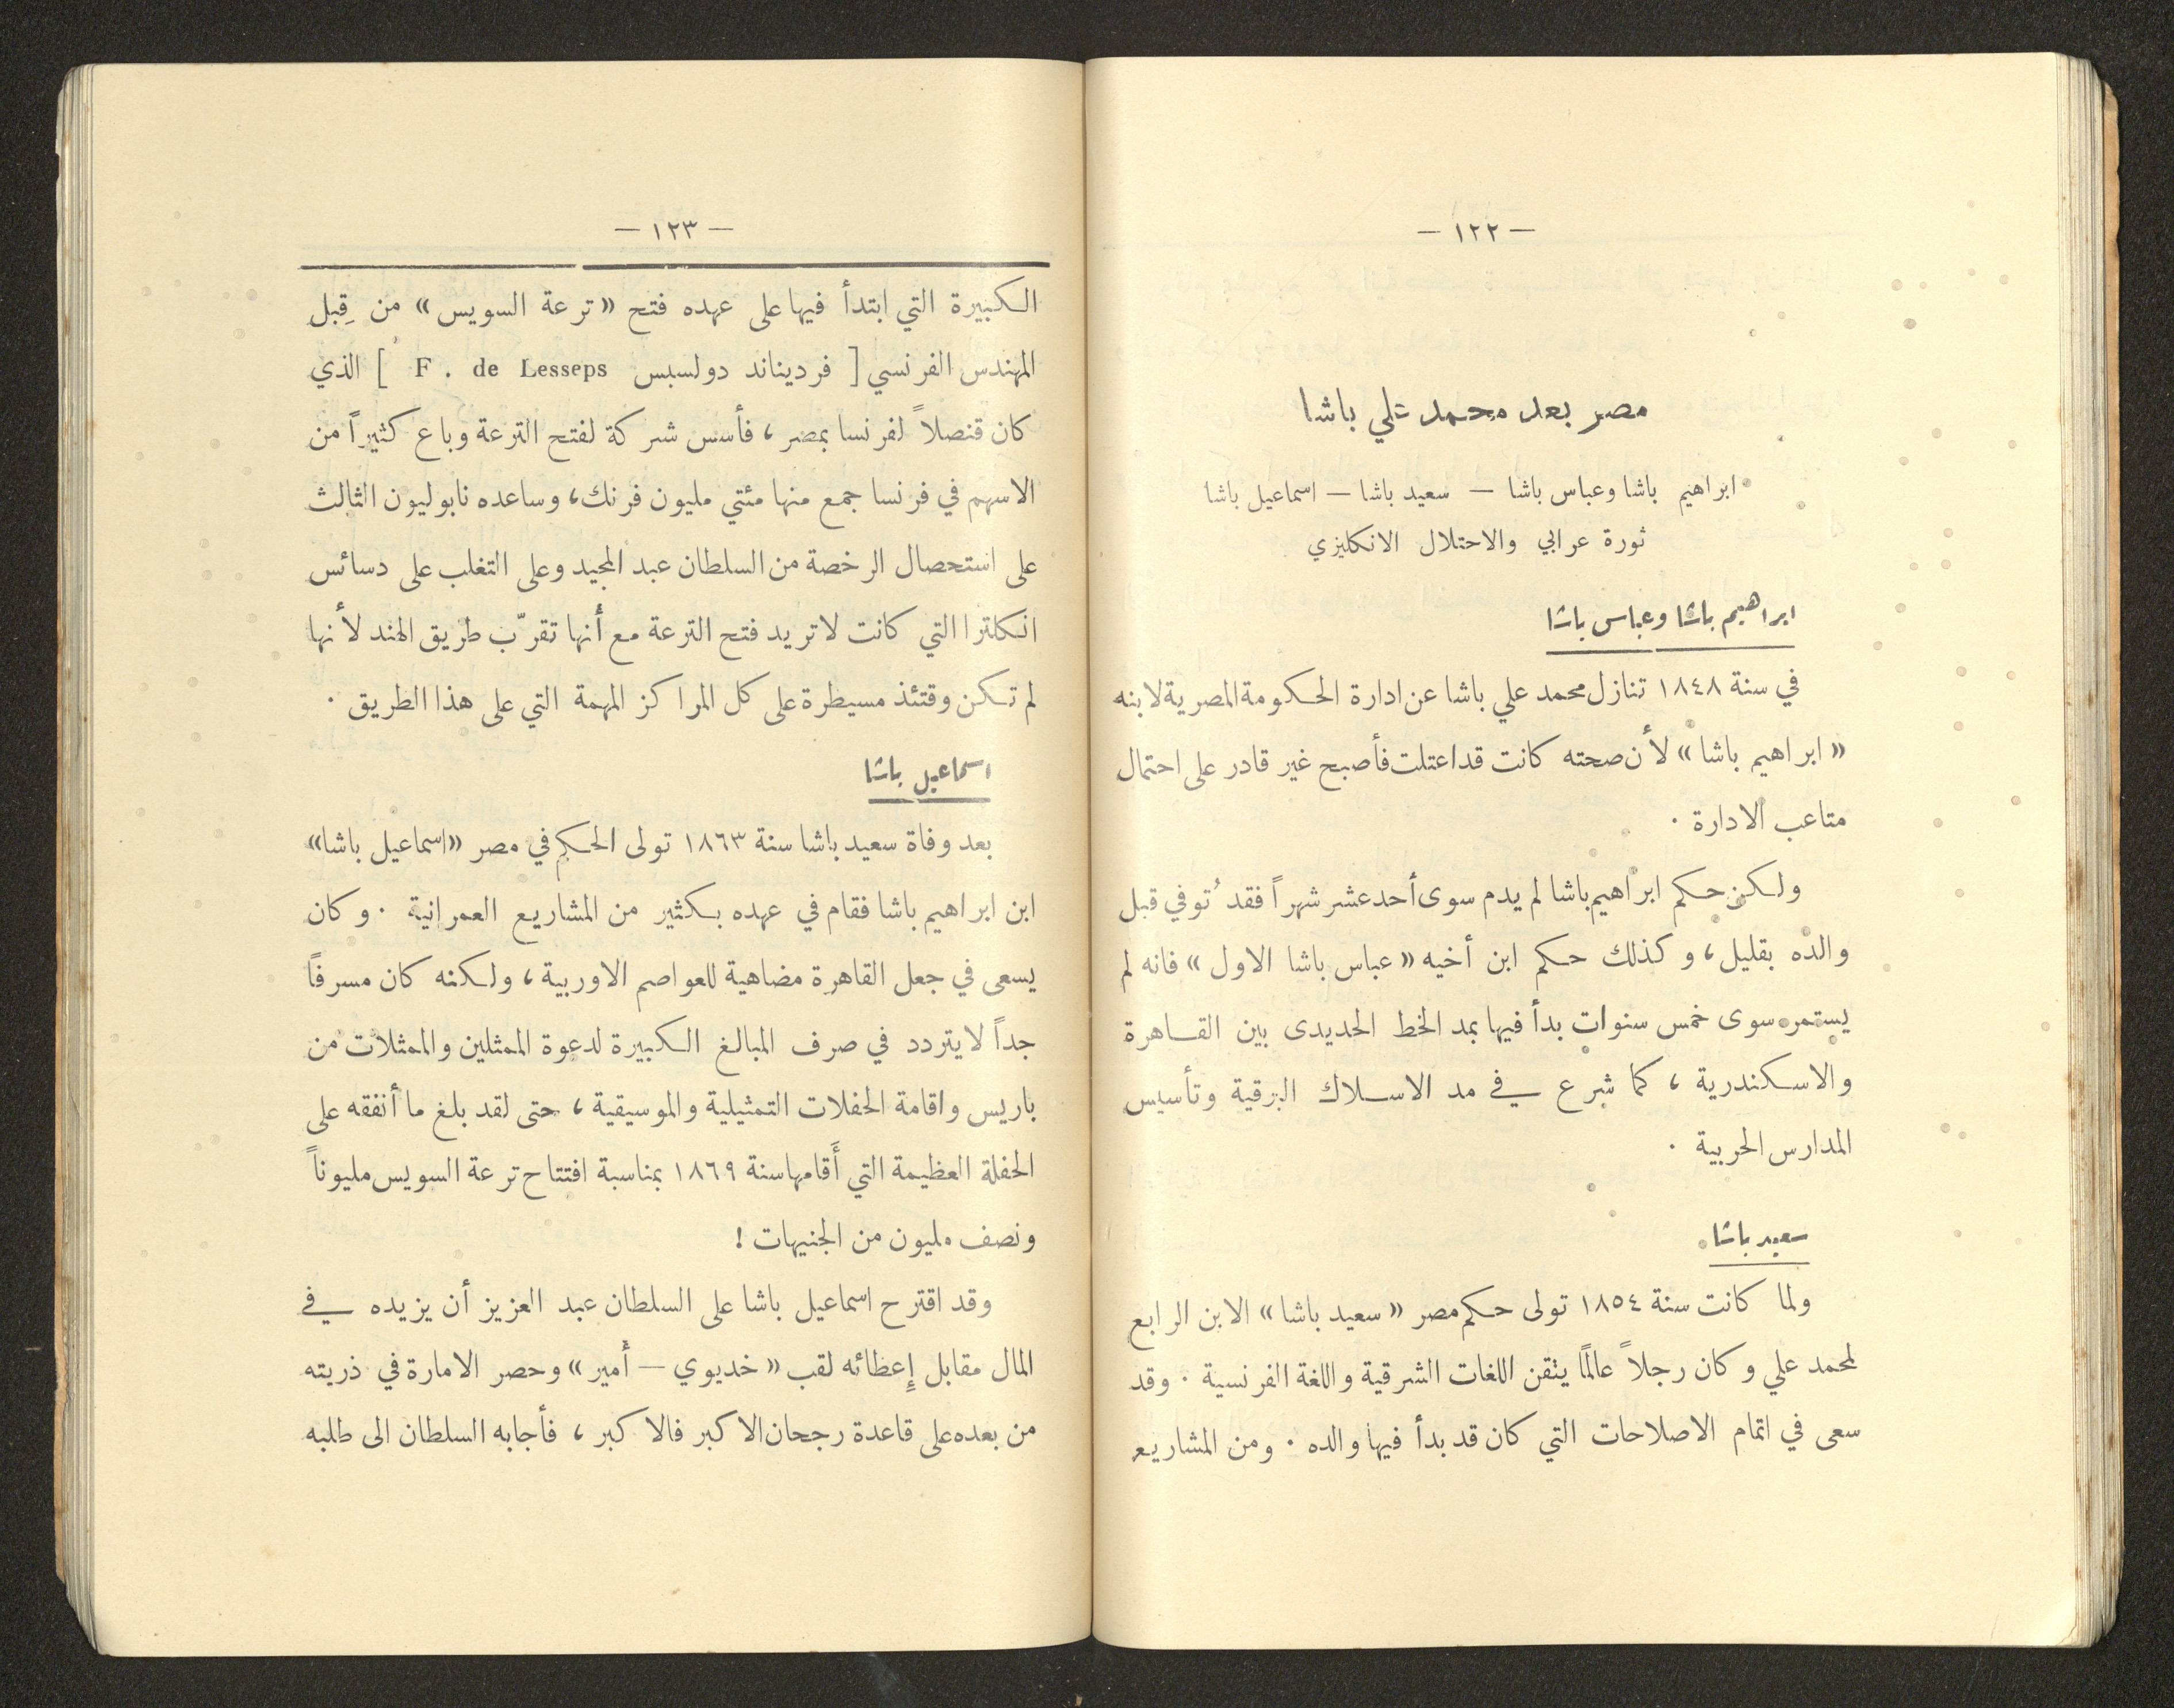 — ١٢٢ —
مصر بعد محمد علي باشا
ابراهيم باشا وعباس باشا — سعيد باشا — اسماعيل باشا
ثورة عرابي والاحتلال الانكليزي
ابراهيم باشا وعباس باشا
في سنة ١٨٤٨ تنازل محمد علي باشا عن ادارة الحكومة المصرية لابنه
« ابراهيم باشا » لأن صحته كانت قد اعتلت فأصبح غير قادر على احتمال
متاعب الادارة .
ولكن حكم ابراهيم باشا لم يدم سوى أحد عشر شهراً فقد تُوفي قبل
والده بقليل ، وكذلك حكم ابن أخيه « عباس باشا الاول » فانه لم
يستمر سوى خمس سنوات بدأ فيها بمد الخط الحديدى بين القاهرة
والاسكندرية ، كما شرع في مد الاسلاك البرقية وتأسيس
المدارس الحربية .
سعيد باشا
ولما كانت سنة ١٨٥٤ تولى حكم مصر « سعيد باشا » الابن الرابع
لمحمد علي وكان رجلاً عالمًا يتقن اللغات الشرقية واللغة الفرنسية . وقد
سعى في اتمام الاصلاحات التي كان قد بدأ فيها والده . ومن المشاريع
— ١٢٣ —
الكبيرة التي ابتدأ فيها على عهده فتح « ترعة السويس » من قِبل
المهندس الفرنسي [ فرديناند دولسبس F. de Lesseps ] الذي
كان قنصلاً لفرنسا بمصر ، فأسس شركة لفتح الترعة وباع كثيراً من
الاسهم في فرنسا جمع منها مئتي مليون فرنك ، وساعده نابوليون الثالث
على استحصال الرخصة من السلطان عبد المجيد وعلى التغلب على دسائس
انكلترا التي كانت لا تريد فتح الترعة مع أنها تقرّب طريق الهند لأنها
لم تكن وقتئذ مسيطرة على كل المراكز المهمة التي على هذا الطريق .
اسماعيل باشا
بعد وفاة سعيد باشا سنة ١٨٦٣ تولى الحكم في مصر « اسماعيل باشا »
ابن ابراهيم باشا فقام في عهده بكثير من المشاريع العمرانية . وكان
يسعى في جعل القاهرة مضاهية للعواصم الاوربية ، ولكنه كان مسرفاً
جداً لا يتردد في صرف المبالغ الكبيرة لدعوة الممثلين والممثلات من
باريس واقامة الحفلات التمثيلية والموسيقية ، حتى لقد بلغ ما أنفقه على
الحفلة العظيمة التي أَقامها سنة ١٨٦٩ بمناسبة افتتاح ترعة السويس مليوناً
ونصف مليون من الجنيهات !
وقد اقترح اسماعيل باشا على السلطان عبد العزيز أن يزيده في
المال مقابل إِعطائه لقب « خديوي — أَمير » وحصر الامارة في ذريته
من بعده على قاعدة رجحان الاكبر فالاكبر ، فأجابه السلطان الى طلبه